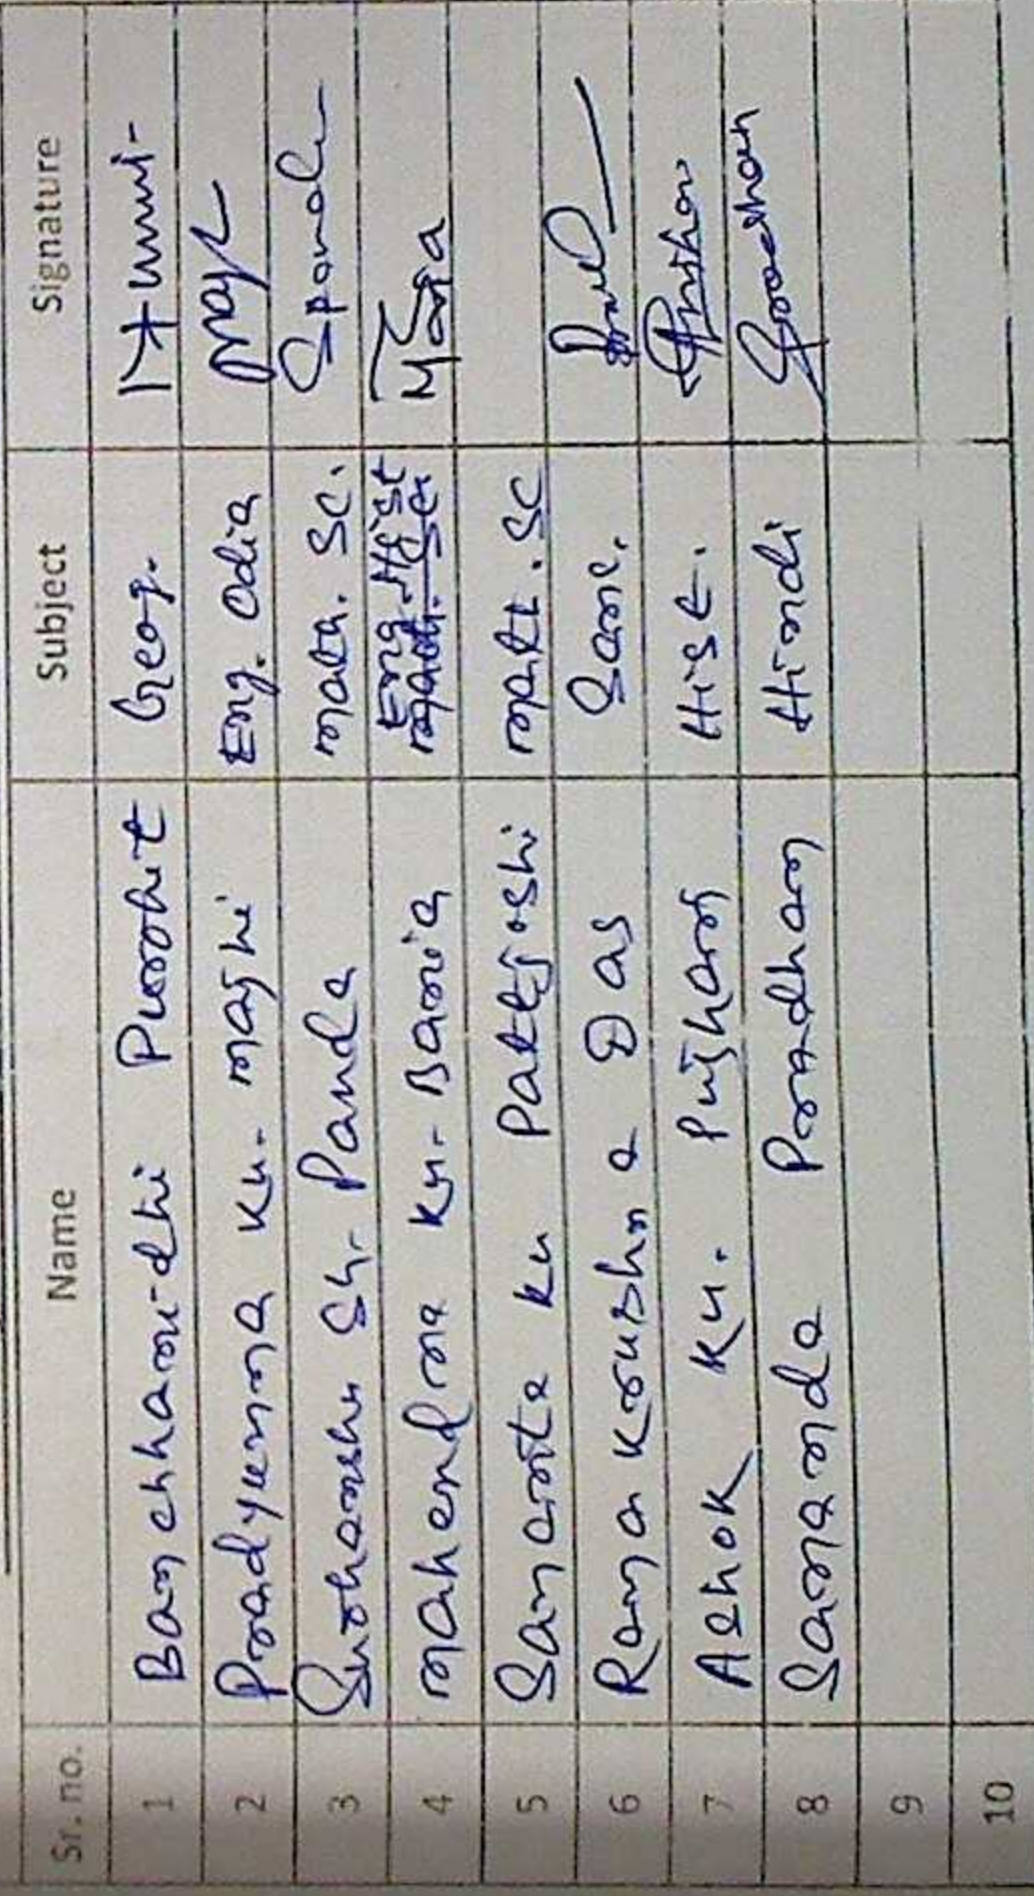 Sr. no. Name Subject Signature
1 Banchhanidhi Purohit Geog.
2 Pradyumna Ku. Majhi Eng. Odia
3 Sudhanshu Sh. Panda Math. Sc.
4 Mahendra Ku. Barria Eng. Hist
5 Samanta Ku Pattjoshi Math. Sc
6 Rama Krushna Das Sans.
7 Ashok Ku. Pujhari Hist.
8 Sananda Pradhan Hindi
9
10